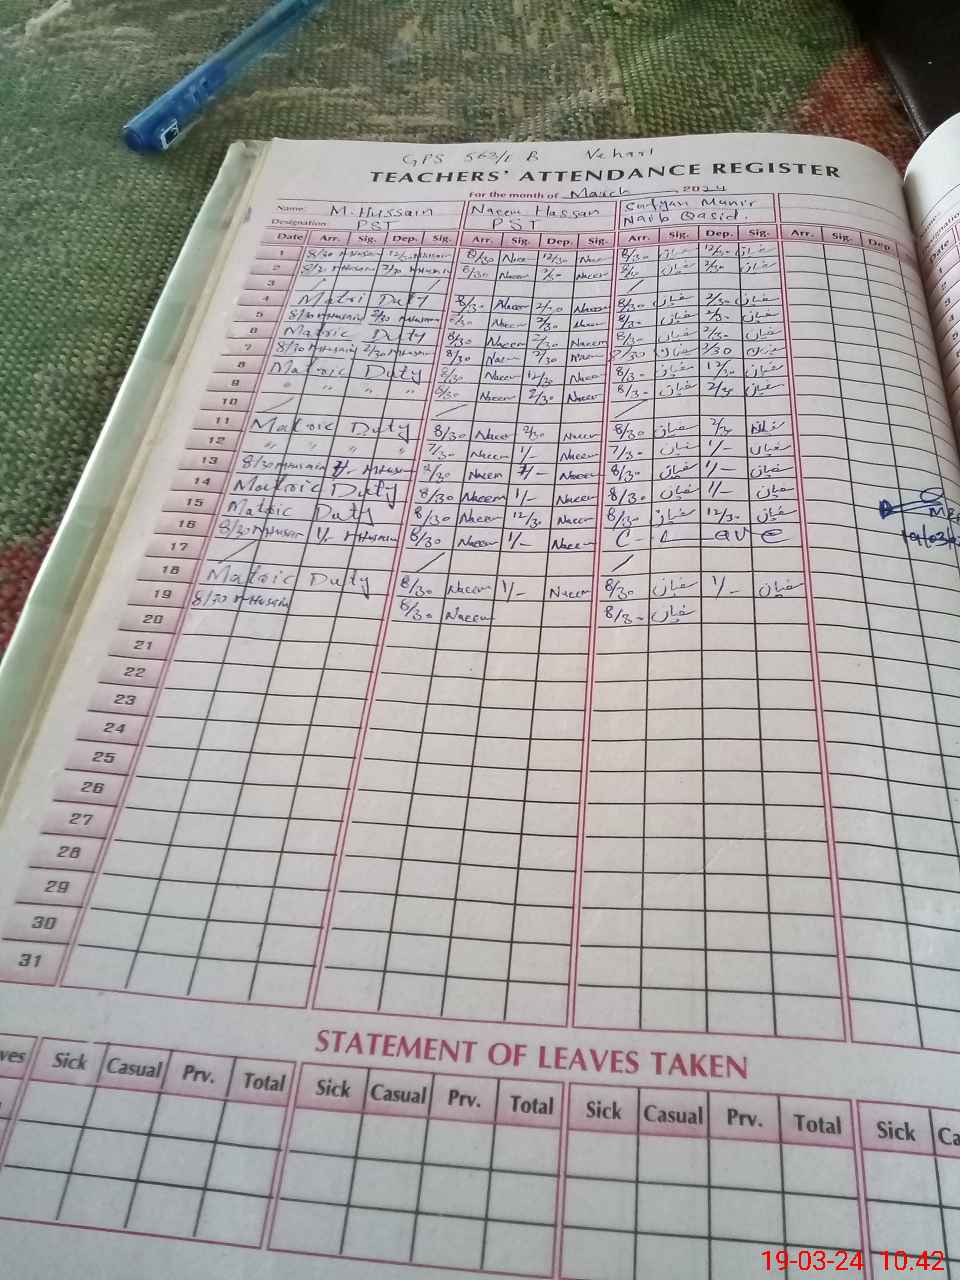 GPS 563/E B Vehari
TEACHERS' ATTENDANCE REGISTER
For the month of March 2024
Name: M. Hussain Naeem Hassan Sufyan Munir
Designation PST PST Naib Qasid.
Date Arr. Sig. Dep. Sig. Arr. Sig. Dep. Sig. Arr. Sig. Dep. Sig. Arr. Sig. Dep.
1 8/30 M Hussain 12/30 M Hussain 8/30 Naee 12/30 Naee 8/30 سفیان 12/30 سفیان
2 8/30 M Hussain 2/30 M Hussain 8/30 Naeem 2/30 Naee 8/30 سفیان 2/30 سفیان
3
4 Matric Duty 8/30 Naeem 2/30 Naeem 8/30 سفیان 2/30 سفیان
5 8/30 M Hussain 2/30 M Hussain 8/30 Naeem 2/30 Naeem 8/30 سفیان 2/30 سفیان
6 Matric Duty 8/30 Naeem 2/30 Naeem 8/30 سفیان 2/30 سفیان
7 8/30 M Hussain 2/30 M Hussain 8/30 Naeem 2/30 Naeem 8/30 سفیان 2/30 سفیان
8 Matric Duty 8/30 Naeem 12/30 Naeem 8/30 سفیان 12/30 سفیان
9 " " " " 8/30 Naeem 2/30 Naeem 8/30 سفیان 2/30 سفیان
10
11 Matric Duty 8/30 Naeem 2/30 Naeem 8/30 سفیان 2/30 سفیان
12 " " " " 7/30 Naeem 1/- Naeem 7/30 سفیان 1/- سفیان
13 8/30 M Hussain 1/- M Hussain 8/30 Naeem 1/- Naeem 8/30 سفیان 1/- سفیان
14 Matric Duty 8/30 Naeem 1/- Naeem 8/30 سفیان 1/- سفیان
15 Matric Duty 8/30 Naeem 12/30 Naeem 8/30 سفیان 12/30 سفیان
16 8/30 M Hussain 1/- M Hussain 8/30 Naeem 1/- Naeem C - L eav e
17
18 Matric Duty 8/30 Naeem 1/- Naeem 8/30 سفیان 1/- سفیان
19 8/30 M Hussain 8/30 Naeem 8/30 سفیان
20
21
22
23
24
25
26
27
28
29
30
31
STATEMENT OF LEAVES TAKEN
Sick Casual Prv. Total Sick Casual Prv. Total Sick Casual Prv. Total Sick
19-03-24 10.42